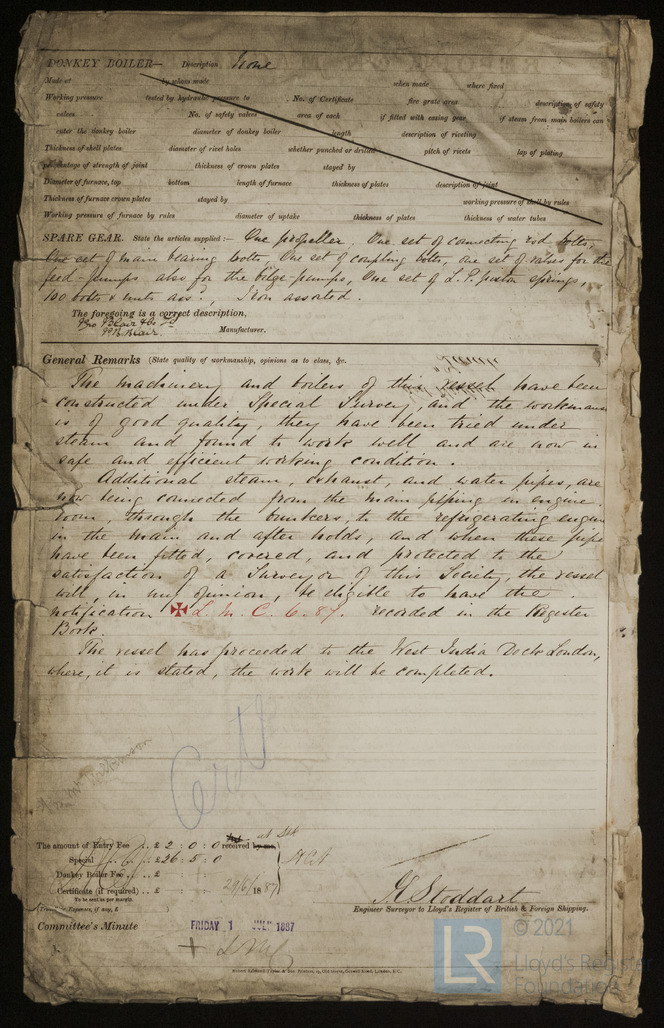 DONKEY BOILER— Description None
Made at by whom made when made where fixed
Working pressure tested by hydraulic pressure to No. of Certificate fire grate area description of safety
valves No. of safety valves area of each if fitted with easing gear if steam from main boilers can
enter the donkey boiler diameter of donkey boiler length description of riveting
Thickness of shell plates diameter of rivet holes whether punched or drilled pitch of rivets lap of plating
percentage of strength of joint thickness of crown plates stayed by
Diameter of furnace, top bottom length of furnace thickness of plates description of joint
Thickness of furnace crown plates stayed by working pressure of shell by rules
Working pressure of furnace by rules diameter of uptake thickness of plates thickness of water tubes
SPARE GEAR. State the articles supplied:— One propeller, One set of connecting rod bolts,
One set of main bearing bolts, One set of coupling bolts, one set of valves for the
feed-pumps also for the bilge-pumps, One set of L.P. piston springs,
100 bolts & nuts ass?, Iron assorted.
The foregoing is a correct description,
Geo Blair & Co Ld
Blair. Manufacturer.
General Remarks (State quality of workmanship, opinions as to class, &c.
The machinery and boilers of this vessel have been
constructed under Special Survey, and the workmans
is of good quality, they have been tried under
steam and found to work well and are now in
safe and efficient working condition.
Additional steam, exhaust, and water pipes, are
now being connected from the main piping in engine
room, through the bunkers, to the refrigerating engin
in the main and after holds, and when these pipes
have been fitted, covered, and protected to the
satisfaction of a Surveyor of this Society, the vessel
will, in my opinion, be eligible to have the
notification ✠ L. M. C. 6.87. recorded in the Register
Book.
The vessel has proceeded to the West India Dock London,
where, it is stated, the work will be completed.
The amount of Entry Fee .. £ 2 : 0 : 0 received by me,
Special .. £ 26 : 5 : 0
Donkey Boiler Fee .. £
Certificate (if required) .. £ 29/6/1887
To be sent as per margin.
(Travelling Expenses, if any, £ )
Stoddart
Engineer Surveyor to Lloyd's Register of British & Foreign Shipping.
Committee's Minute FRIDAY 1 JULY 1887
+ LMC
LR
© 2021
Lloyd's Register
Foundation